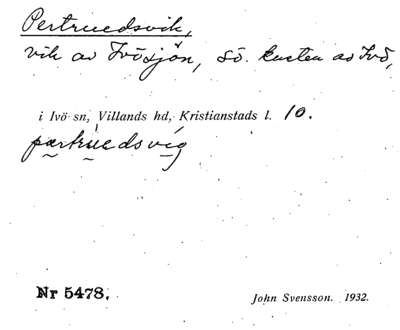 Pertruedsvik,
vik av Ivösjön, sö. kusten av Ivö,
i Ivö sn, Villands hd, Kristianstads l. 10.
pærtruedsvig
Nr 5478.
John Svensson. 1932.